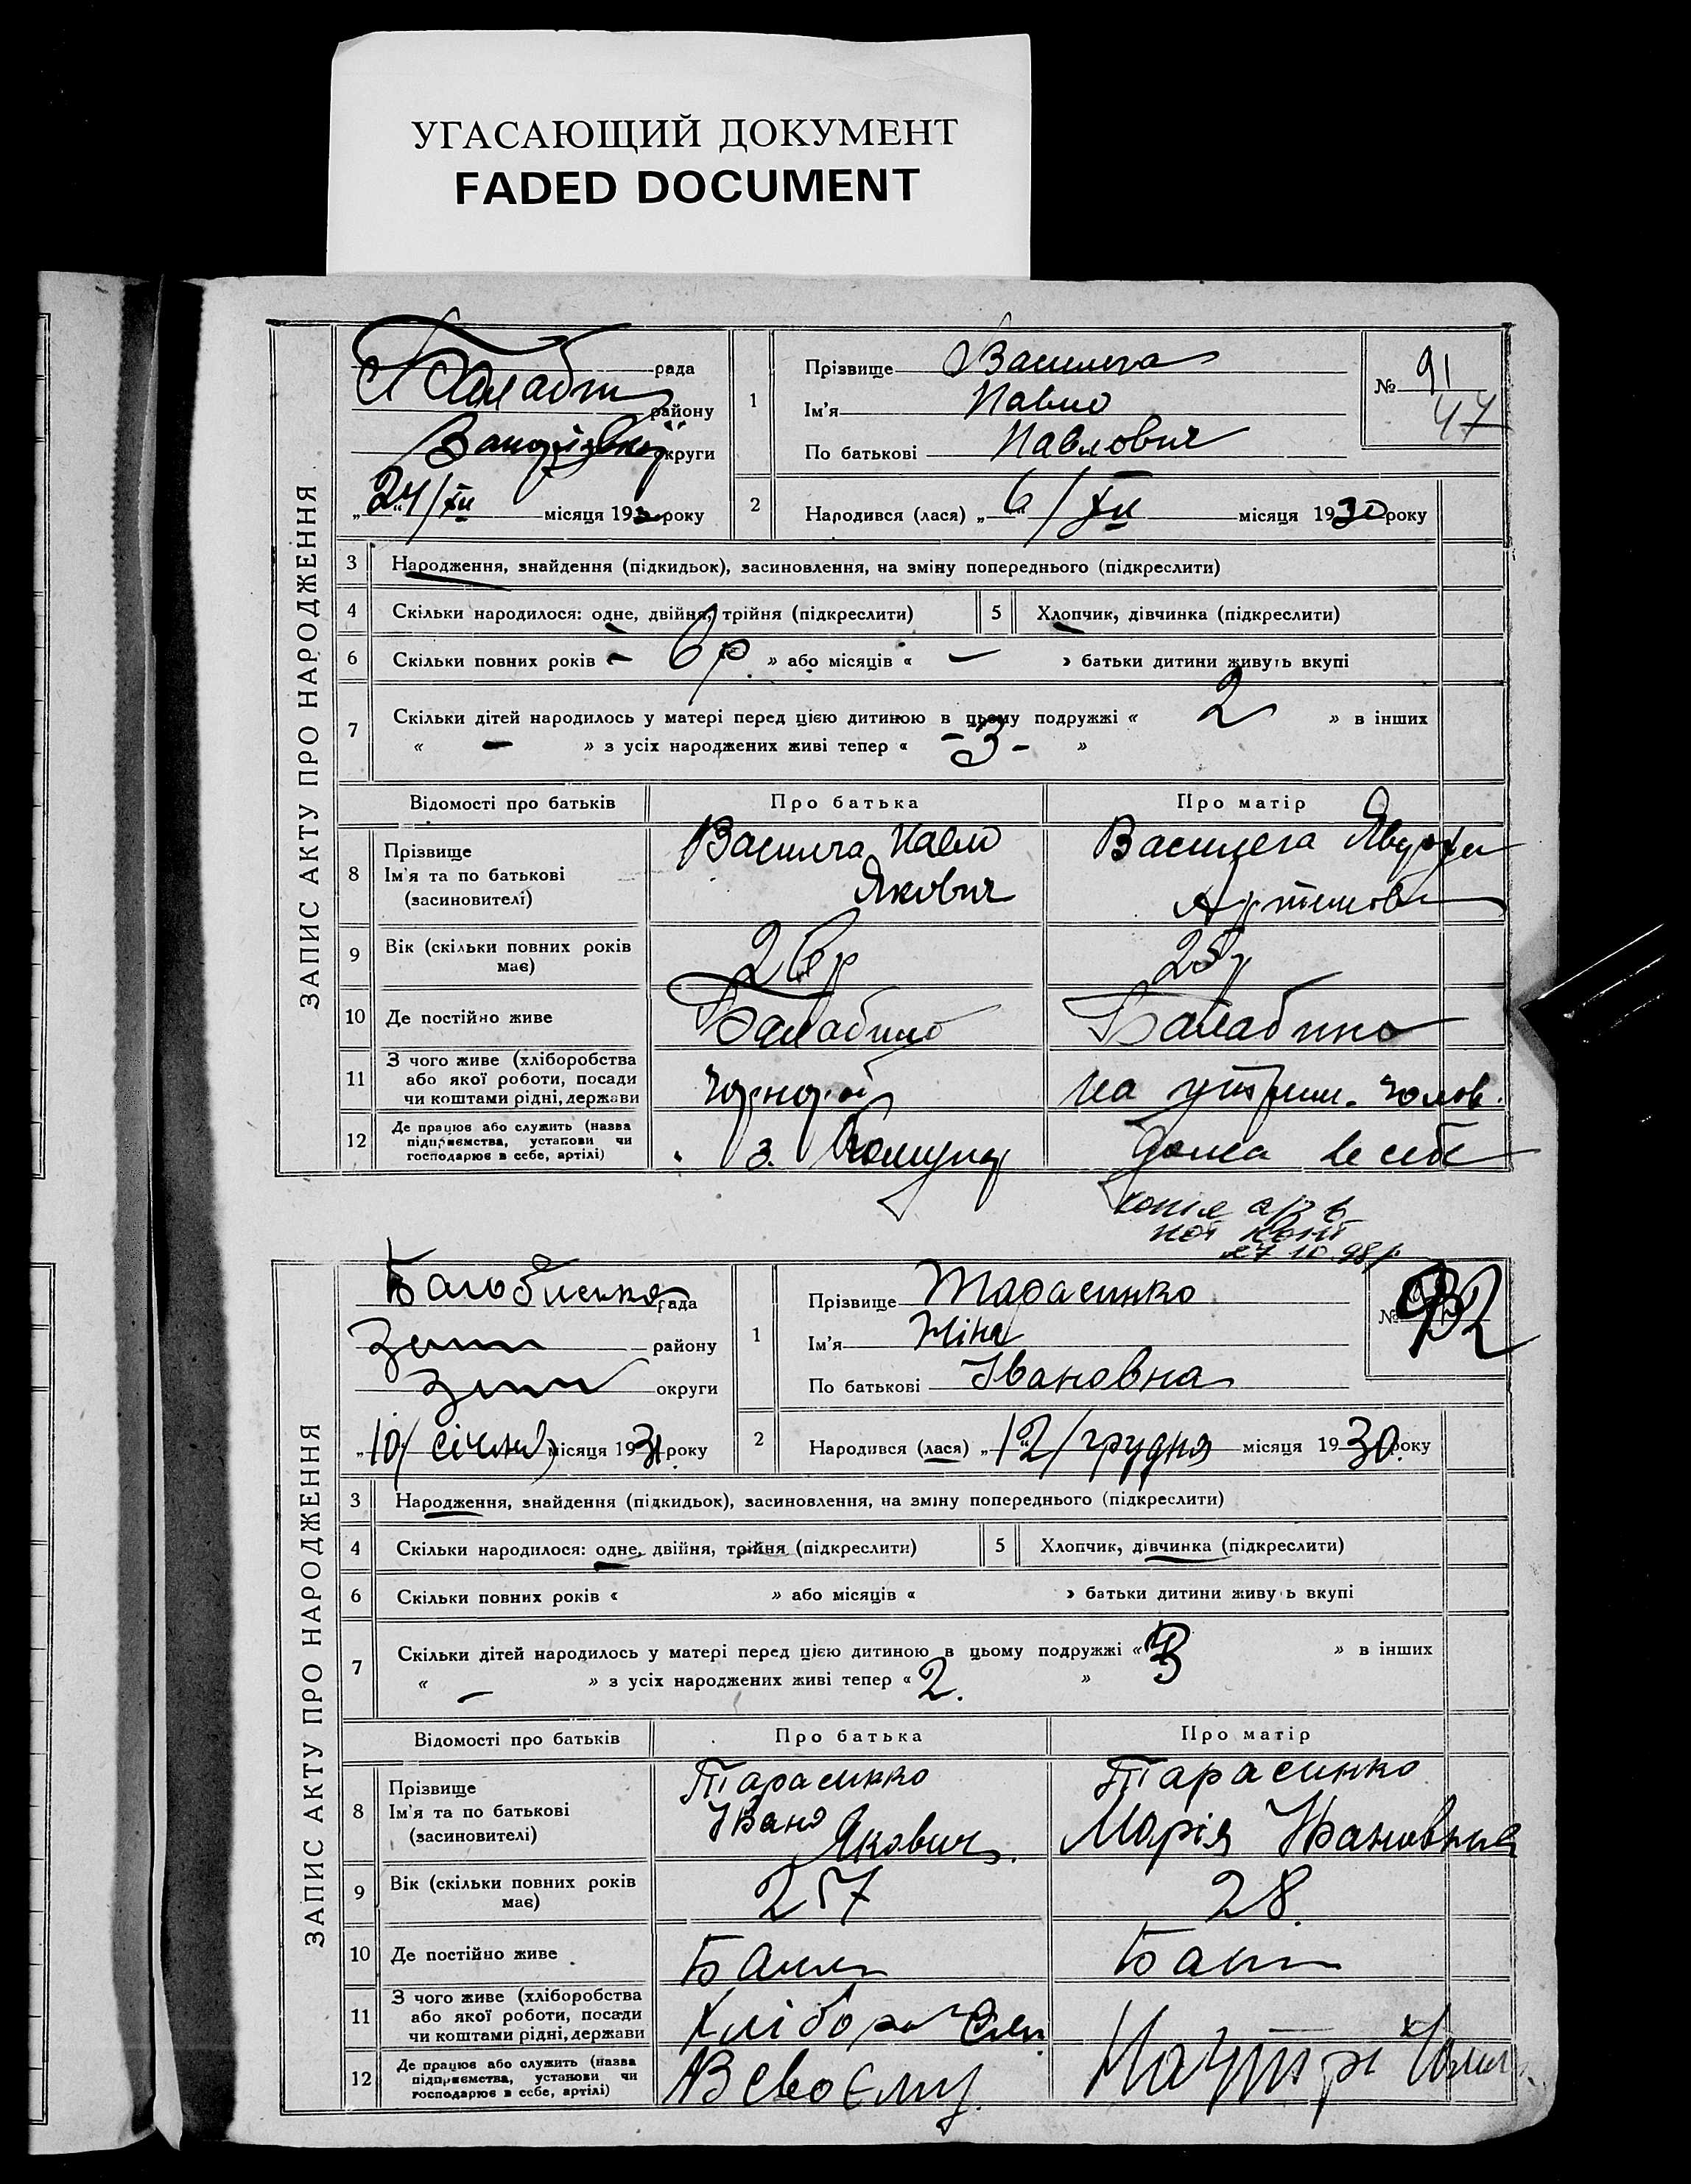 УГАСАЮЩИЙ ДОКУМЕНТ
FADED DOCUMENT
ЗАПИС АКТУ ПРО НАРОДЖЕННЯ
рада
району
округи
24/XII місяця 193 року
1
Прізвище
Ім'я Павло
По батькові Павлович
№ 91
47
2
Народився (лася) „ 6 / XII місяця 1930 року
3 Народження, знайдення (підкидьок), засиновлення, на зміну попереднього (підкреслити)
4 Скільки народилося: одне, двійня, трійня (підкреслити) 5 Хлопчик, дівчинка (підкреслити)
6 Скільки повних років « 6 р. » або місяців « — » батьки дитини живуть вкупі
7 Скільки дітей народилось у матері перед цією дитиною в цьому подружжі « 2 » в інших
« — » з усіх народжених живі тепер « -3- »
Відомості про батьків Про батька Про матір
8 Прізвище
Ім'я та по батькові
(засновителі)
Павло
Якович
9 Вік (скільки повних років має)
26р
25р
10 Де постійно живе
Балабино
Балабино
11 З чого живе (хліборобства
або якої роботи, посади
чи коштами рідні, держави
чорнороб
на утрим. чолов.
12 Де працює або служить (назва
підприємства, установи чи
господарює в себе, артілі)
дома в себе
копія а/з в
27 10.98р
ЗАПИС АКТУ ПРО НАРОДЖЕННЯ
рада
району
округи
„10/ січня місяця 1931 року
1
Прізвище Тарасинко
Ім'я Ніна
По батькові Івановна
№ 92
2
Народився (лася) „12/ грудня місяця 1930 року
3 Народження, знайдення (підкидьок), засиновлення, на зміну попереднього (підкреслити)
4 Скільки народилося: одне, двійня, трійня (підкреслити) 5 Хлопчик, дівчинка (підкреслити)
6 Скільки повних років « » або місяців « » батьки дитини живуть вкупі
7 Скільки дітей народилось у матері перед цією дитиною в цьому подружжі « 3 » в інших
« — » з усіх народжених живі тепер « 2. »
Відомості про батьків Про батька Про матір
8 Прізвище
Ім'я та по батькові
(засиновителі)
Тарасинко
Івано
Якович.
Тарасинко
Марія Івановна
9 Вік (скільки повних років має)
257
28.
10 Де постійно живе
11 З чого живе (хліборобства
або якої роботи, посади
чи коштами рідні, держави
12 Де працює або служить (назва
підприємства, установи чи
господарює в себе, артілі)
В своєму.